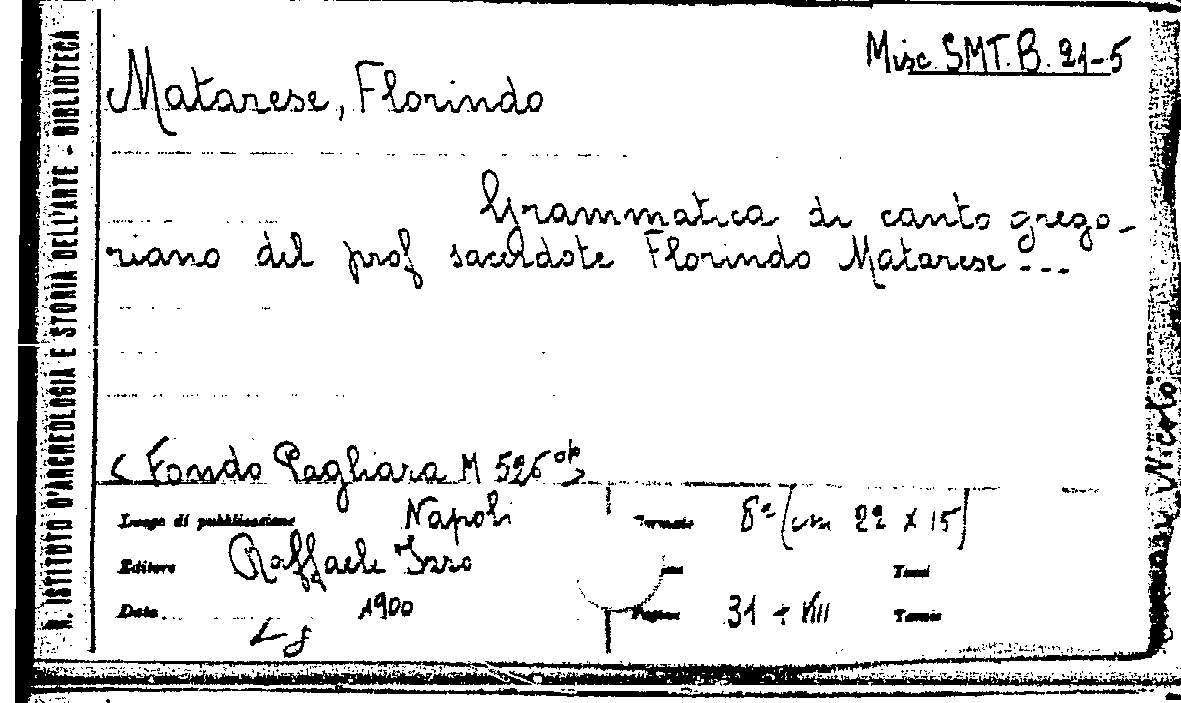 Misc. SMT. B. 21-5
Matarese, Florindo
Grammatica di canto grego-
riano del prof sacerdote Florindo Matarese ---
< Fondo Pagliara M 526 >
Luogo di pubblicazione Napoli
Formato 8° (cm 22 x 15)
Editore Raffaele Izzo
Tomi
Data 1900
Pagine 31 + VIII
R. ISTITUTO D'ARCHEOLOGIA E STORIA DELL'ARTE - BIBLIOTECA
Nicolò